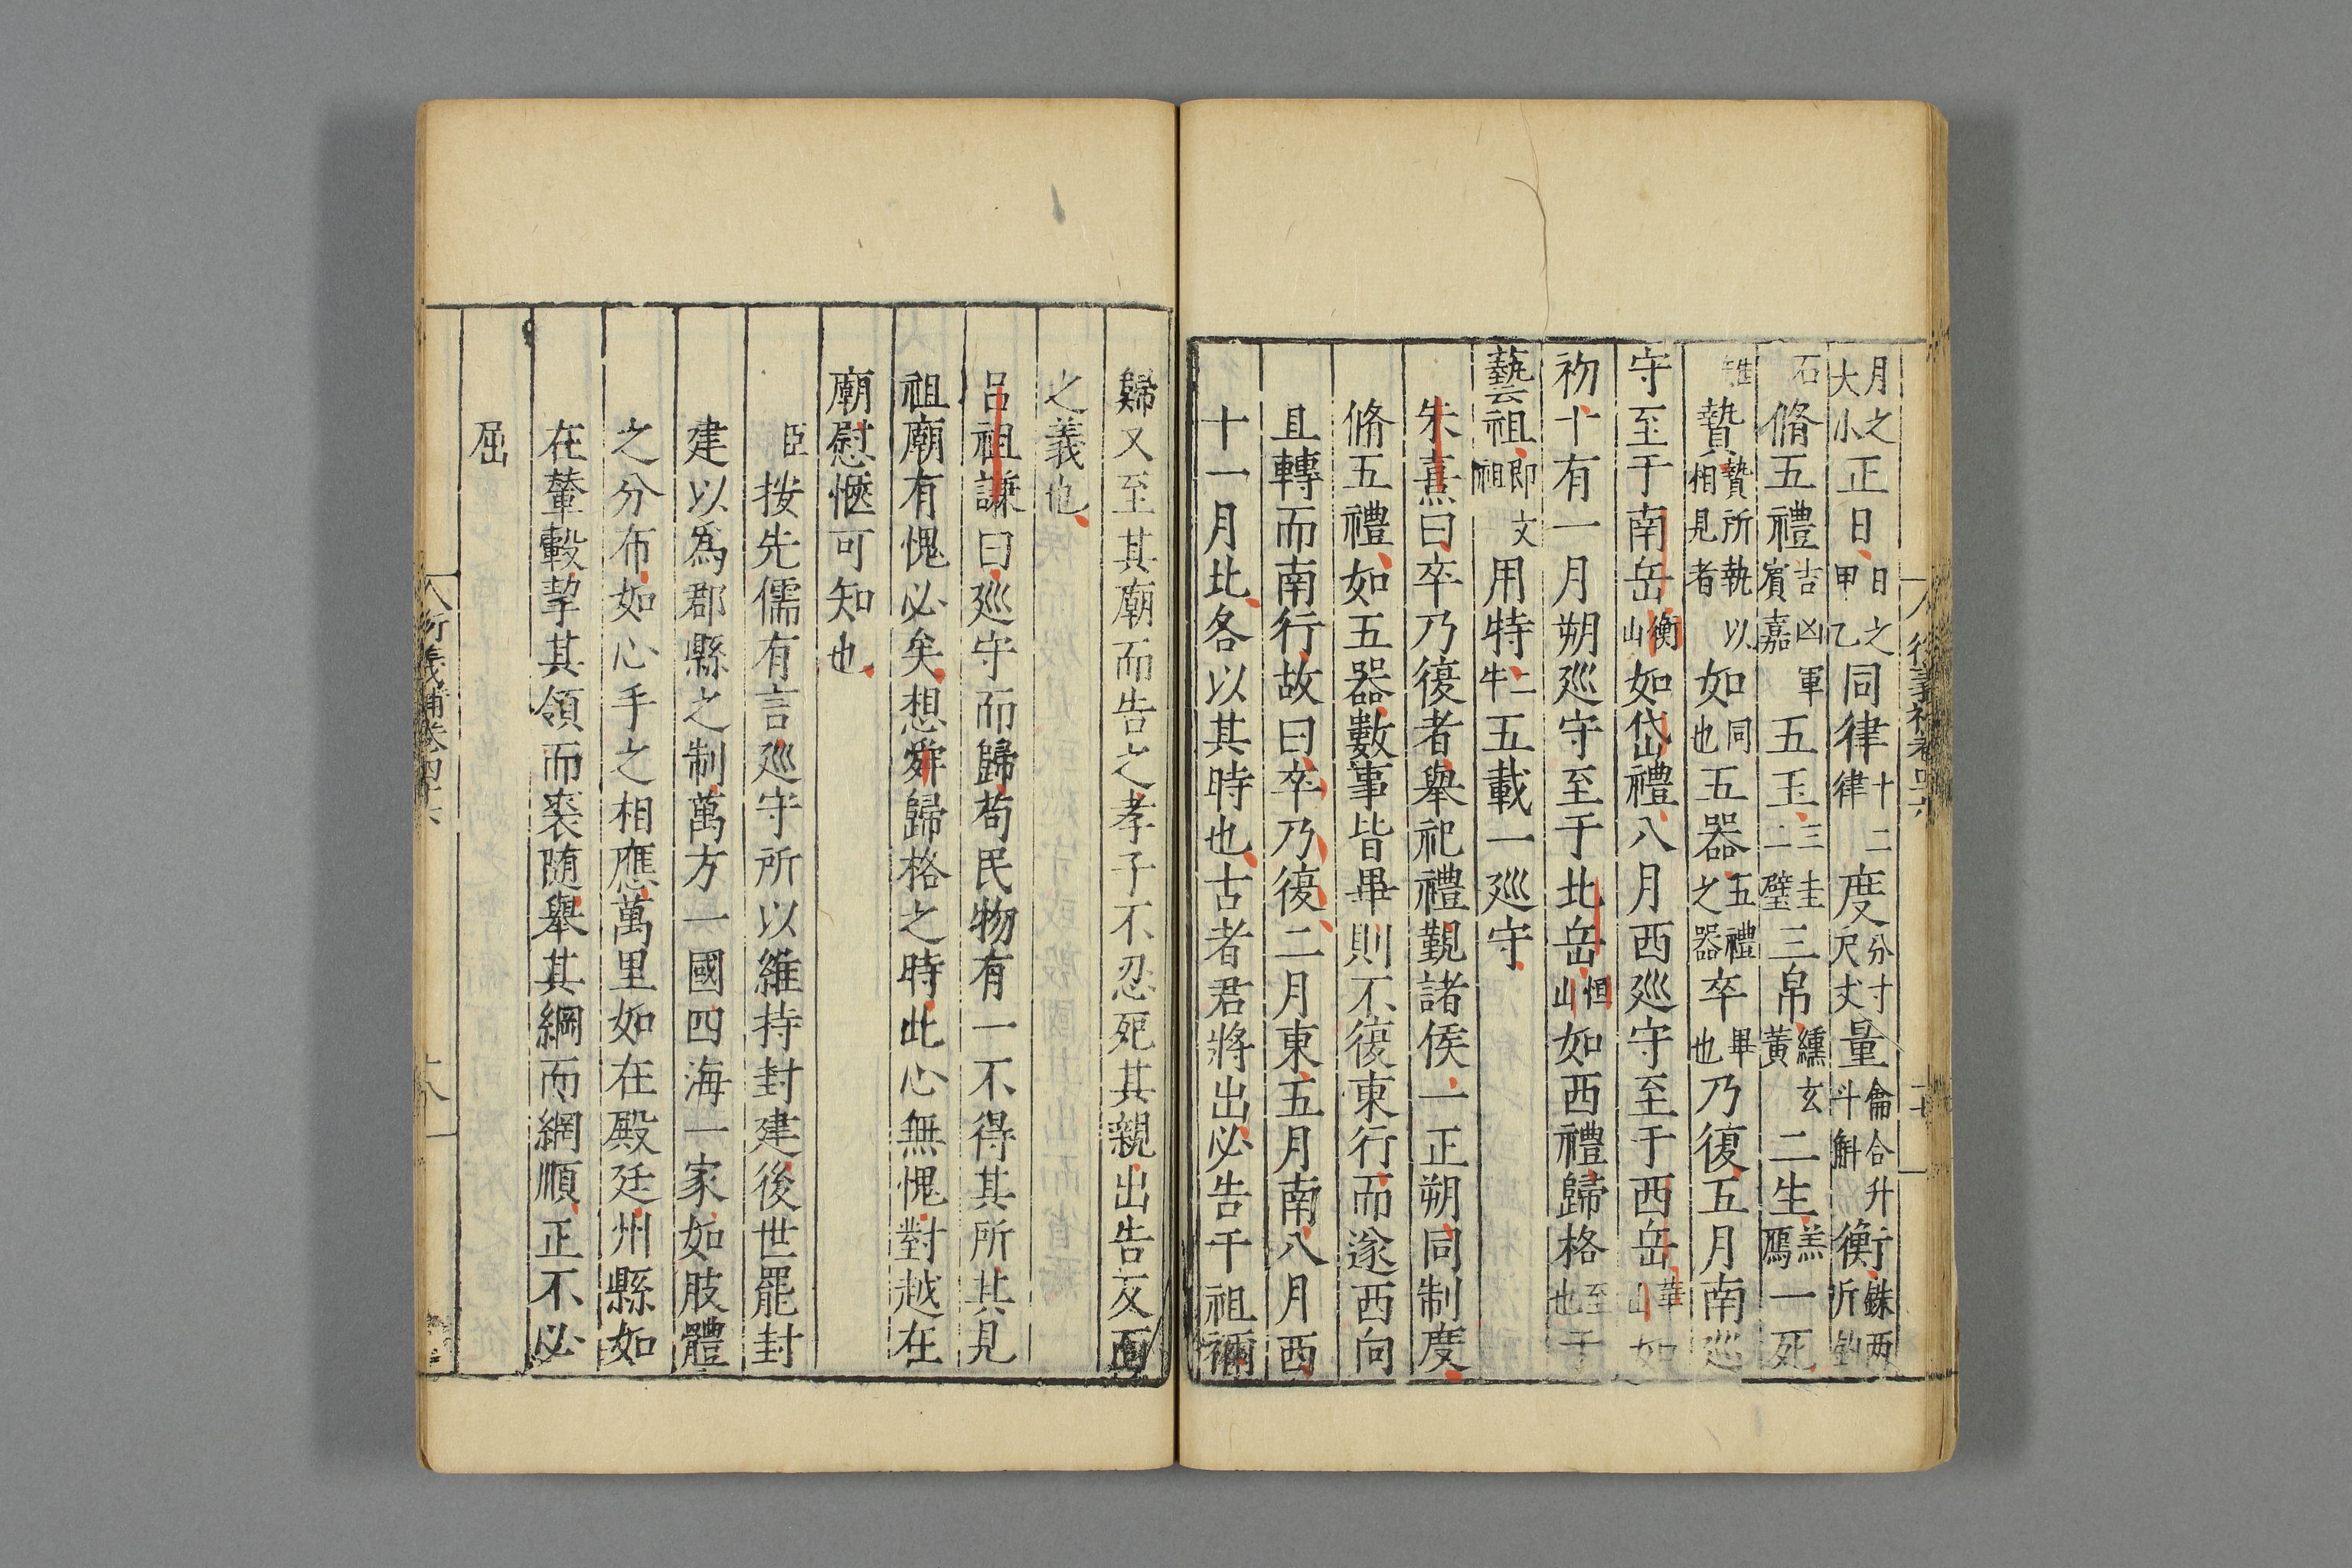 月之大小正日日之甲乙同律十二律度分寸尺丈量龠合升斗斛衡銖兩斤鈞
石脩五禮吉凶軍賓嘉五玉三圭二璧三帛纁玄黃二生羔鴈一死
雉贄贄所執以相見者如同也五器五禮之器卒畢也乃復五月南廵
守至于南岳衡山如岱禮八月西廵守至于西岳華山如
初十有一月朔廵守至于北岳恒山如西禮歸格至也于
藝祖即文祖用特一牛五載一廵守
朱熹曰卒乃復者舉祀禮覲諸侯一正朔同制度
脩五禮如五器數事皆畢則不復東行而遂西向
且轉而南行故曰卒乃復二月東五月南八月西
十一月北各以其時也古者君將出必告于祖禰
歸又至其廟而告之孝子不忍死其親出告反面
之義也
呂祖謙曰廵守而歸苟民物有一不得其所其見
祖廟有愧必矣想舜歸格之時此心無愧對越在
廟慰愜可知也
臣按先儒有言廵守所以維持封建後世罷封
建以爲郡縣之制萬方一國四海一家如肢體
之分布如心手之相應萬里如在殿廷州縣如
在輦轂挈其領而裘随舉其綱而網順正不必
屈
衍義補卷四十六
十八